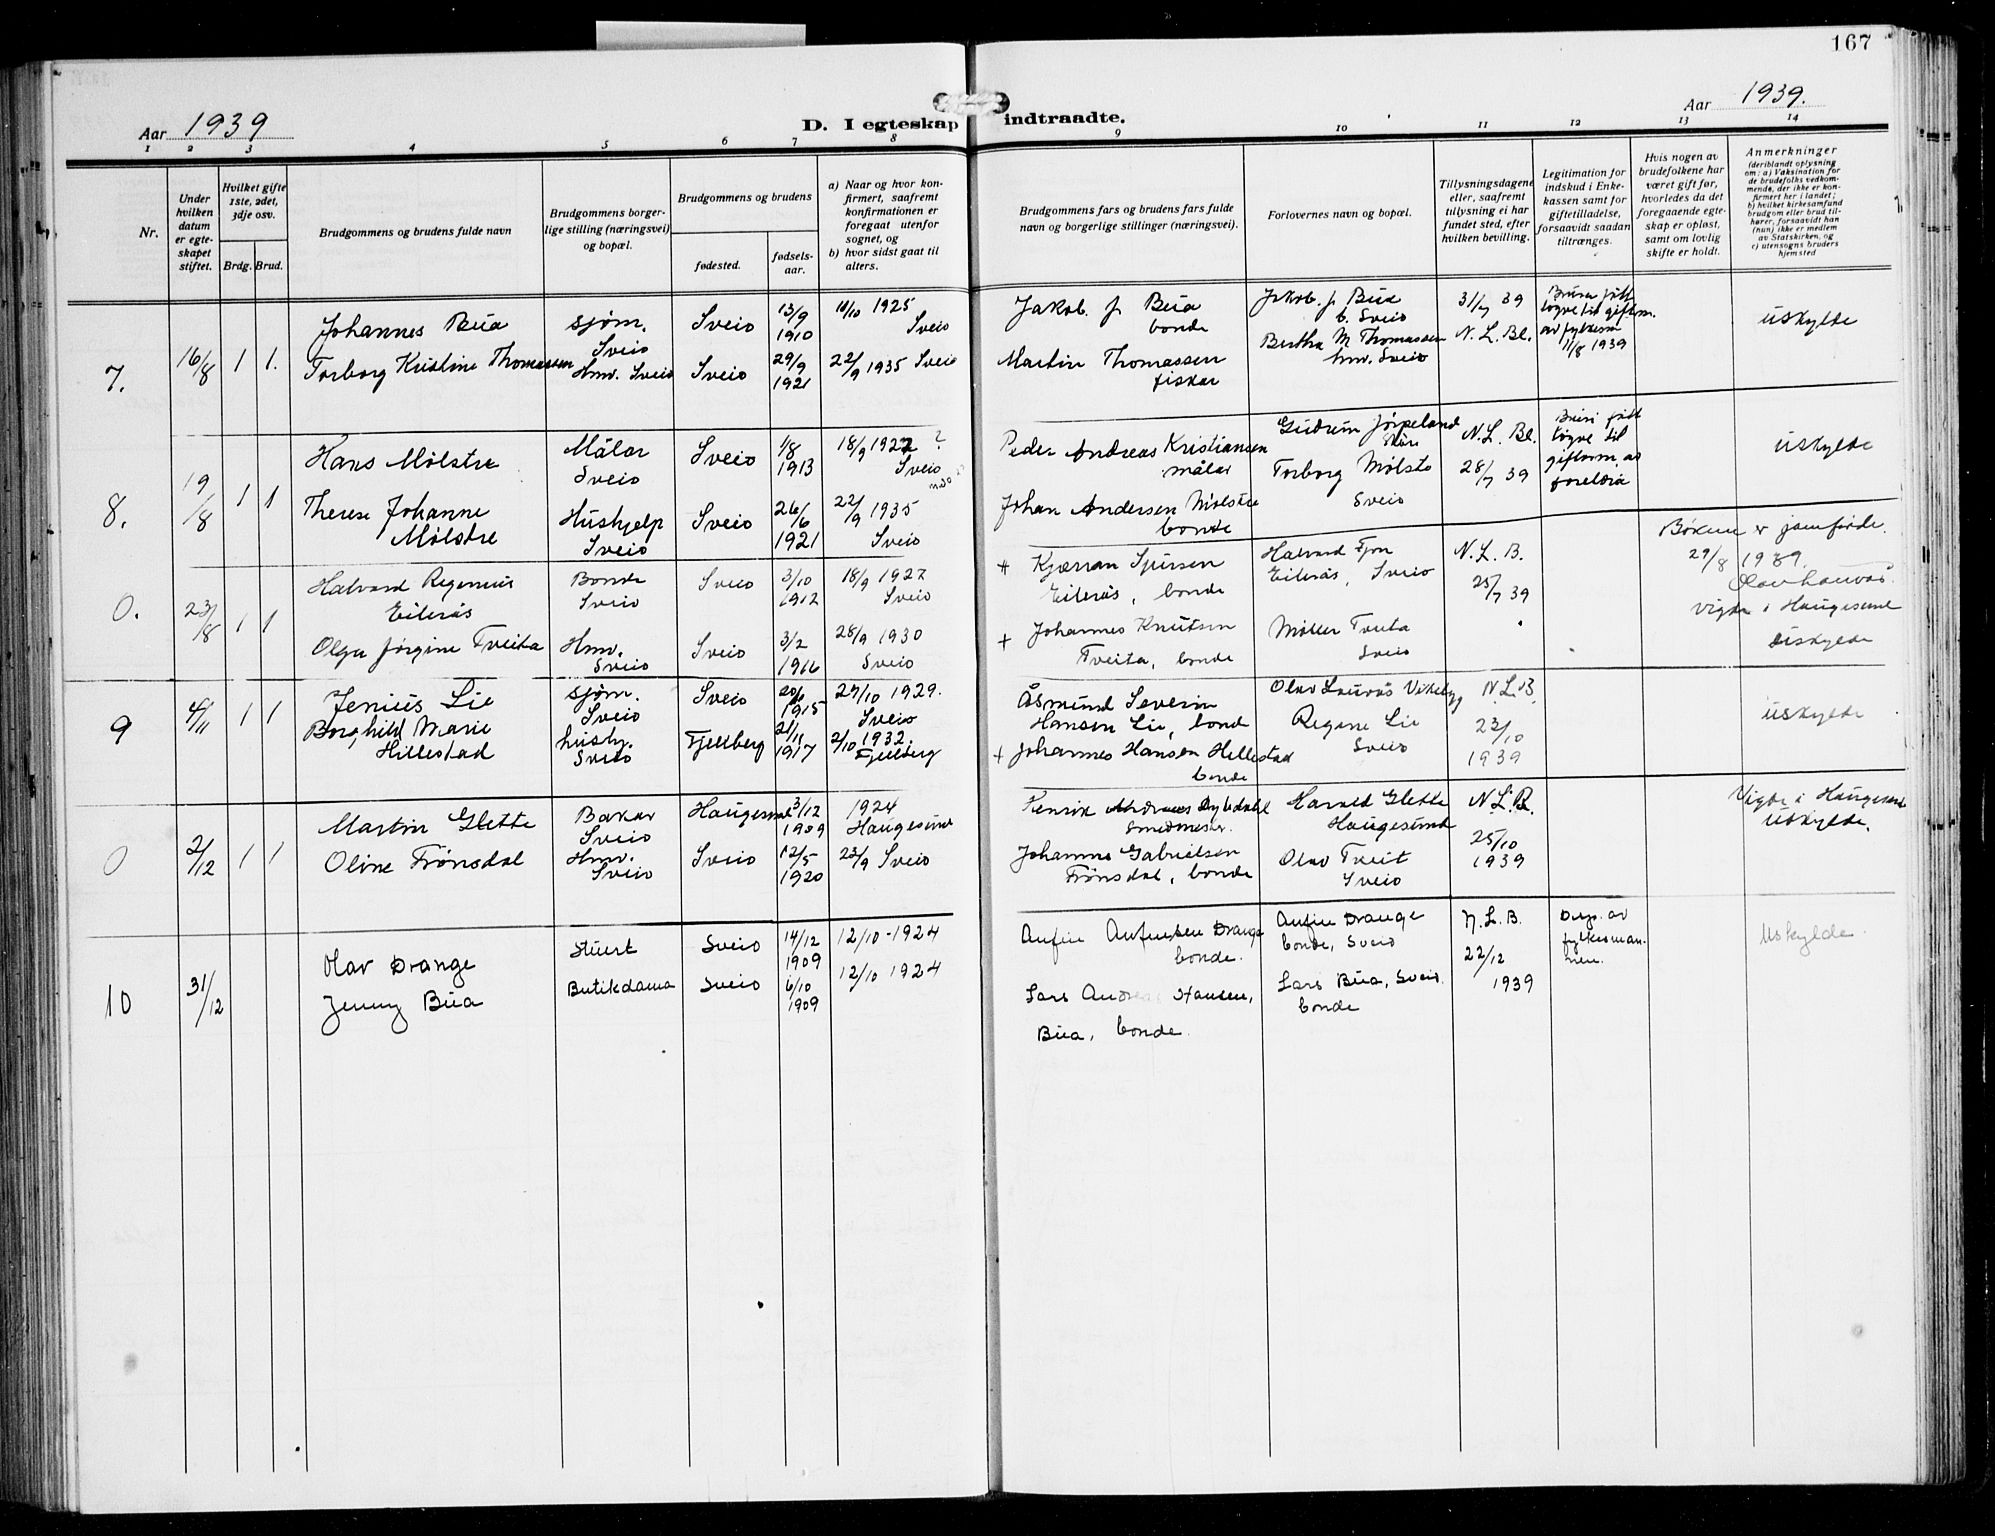 167
Aar 1939
D. I egteskap indtraadte.
Aar 1939.
1 2 3 4 5 6 7 8 9 10 11 12 13 14
Nr.
Under hvilken datum er egteskapet stiftet.
Hvilket gifte 1ste, 2det, 3dje osv.
Brdg. Brud.
Brudgommens og brudens fulde navn
Brudgommens borgerlige stilling (næringsvei) og bopæl.
Brudgommens og brudens
fødested.
fødselsaar.
a) Naar og hvor konfirmert, saafremt konfirmationen er foregaat utenfor sognet, og
b) hvor sidst gaat til alters.
Brudgommens fars og brudens fars fulde navn og borgerlige stillinger (næringsvei).
Forlovernes navn og bopæl.
Tillysningsdagene eller, saafremt tillysning ei har fundet sted, efter hvilken bevilling.
Legitimation for indskud i Enkekassen samt for giftetilladelse, forsaavidt saadan tiltrænges.
Hvis nogen av brudefolkene har været gift før, hvorledes da det foregaaende egteskap er opløst, samt om lovlig skifte er holdt.
Anmerkninger
(deriblandt oplysning om: a) Vaksination for de brudefolks vedkommende, der ikke er konfirmert her i landet; b) hvilket kirkesamfund brudgom eller brud tilhører, forsaavidt han (hun) ikke er medlem av Statskirken, og c) utensogns bruders hjemsted
7. 16/8 1 1.
Johannes Bua sjøm. Sveio Sveio 13/9 1910 11/10 1925 Sveio
Torborg Kristine Thomassen Hmv. Sveio Sveio 29/9 1921 22/9 1935 Sveio
Jakob. J. Bua bonde
Martin Thomassen fiskar
Jakob. J. Bua b. Sveio
Bertha M Thomassen hmv. Sveio
31/7 39
N. L. Bl.
Bruri fått løyve til giftm. av fylkesm. 11/8 1939
uskylde
8. 19/8 1 1
Hans Mølstre Målar Sveio Sveio 1/8 1913 18/9 1927 ? Sveio
Therese Johanne Mølstre Hushjelp Sveio Sveio 26/6 1921 22/9 1935 Sveio
Peder Andreas Kristiansen målar
Johan Andersen Mølstre bonde
Gudrun Jørpeland
Torborg Mølstre Sveio
N. L. Bl.
28/7 39
Bruri fått løyve til giftarm. av foreldra
uskylde
0. 23/8 1 1
Halvard Regenius Eilerås Bonde Sveio Sveio 3/10 1912 18/9 1927 Sveio
Olga Jørgine Tveita Hmv. Sveio Sveio 3/2 1916 28/9 1930 Sveio
Eilerås, bonde
+ Johannes Knutsen Tveita, bonde
Eilerås, Sveio
Møller Tveita Sveio
N. L. B.
25/7 39
Bøkene er jamførde.
29/8 1939.
Vigde i Haugesund
uskylde
9 4/11 1 1
Jenius Lie sjøm. Sveio Sveio 1915 27/10 1929. Sveio
Borghild Marie Hillestad hushj. Sveio Fjellberg 21/11 1917 2/10 1932. Fjelberg
Åsmund Severin Hansen Lie, bonde
+ Johannes Hansen Hellestad bonde
Regine Lie Sveio
N. L. B.
23/10 1939
uskylde
0 2/12 1 1
Martin Glette Bakar Sveio Haugesund 3/12 1909 1924 Haugesund
Oline Trønsdal Hmv. Sveio Sveio 12/5 1920 23/9 Sveio
Smedmester.
Johannes Gabrielsen Trønsdal, bonde
Harald Glette Haugesund
Olav Tveit Sveio
N. L. B.
25/10 1939
Vigde i Haugesund
uskylde.
10 31/12
Olav Drange Stuert Sveio 14/12 1909 12/10 - 1924
Jenny Bua Butikdama Sveio 6/10 1909 12/10 1924
Anfin Anfinsen Drange bonde.
Lars Andreas Hansen, Bua, bonde.
Anfin Drange bonde, Sveio
Lars Bua, Sveio. bonde
N. L. B.
22/12 1939
Disp. av fylkesmannen.
Uskylde.